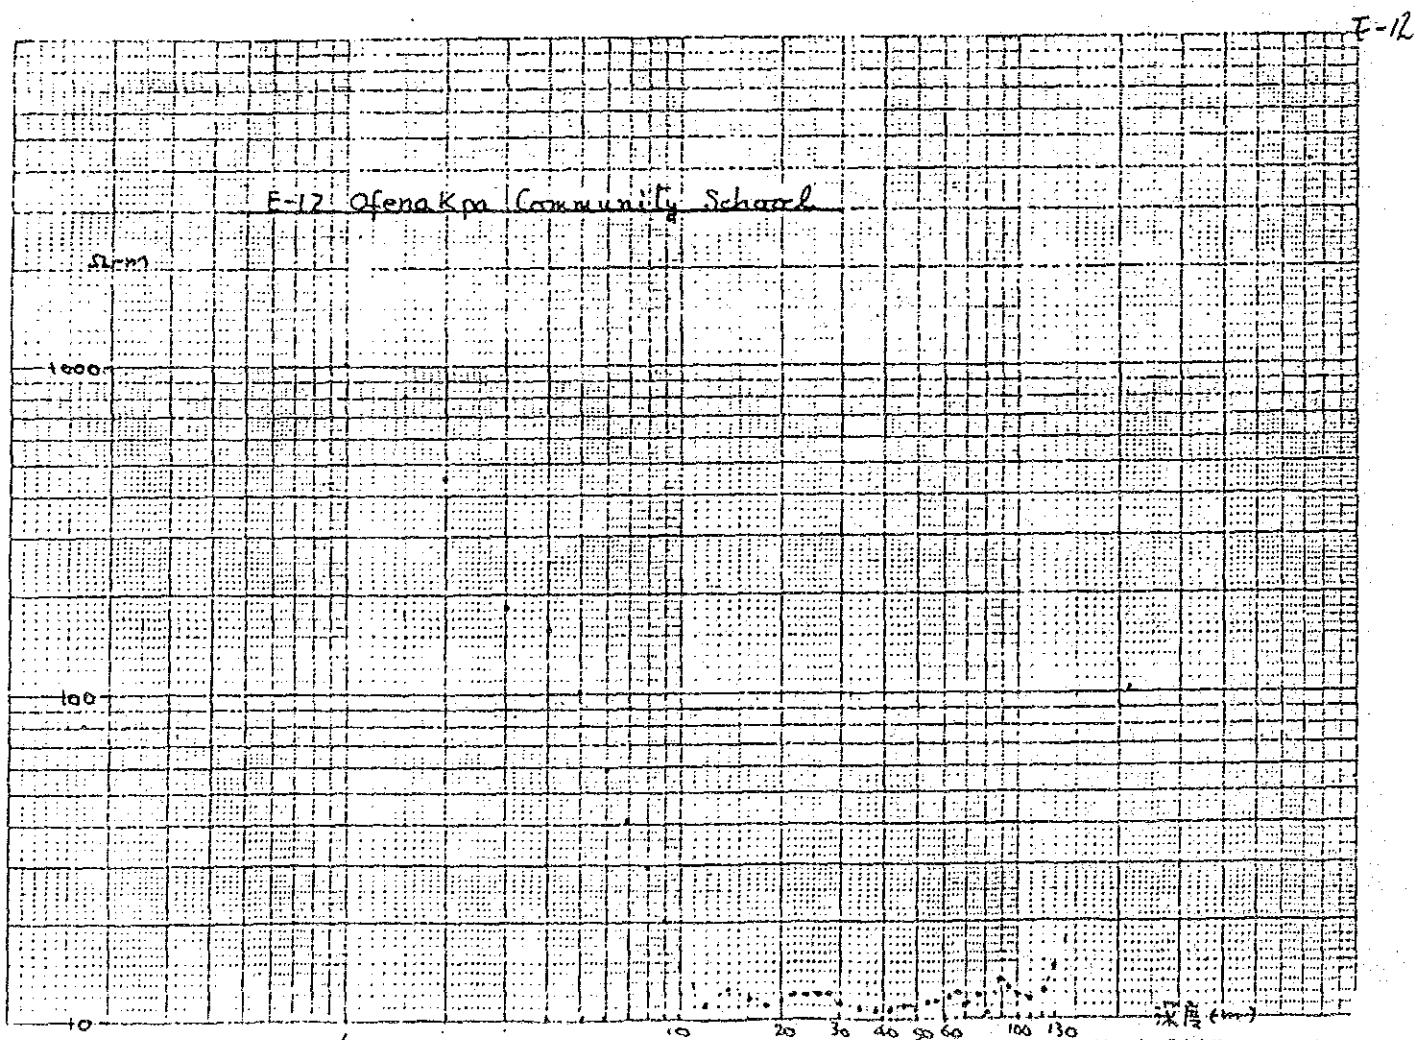 E-12
E-12 Ofenakpa Community School
Ω-m
1000
100
10
1 10 20 30 40 50 60 100 130 深度(m)